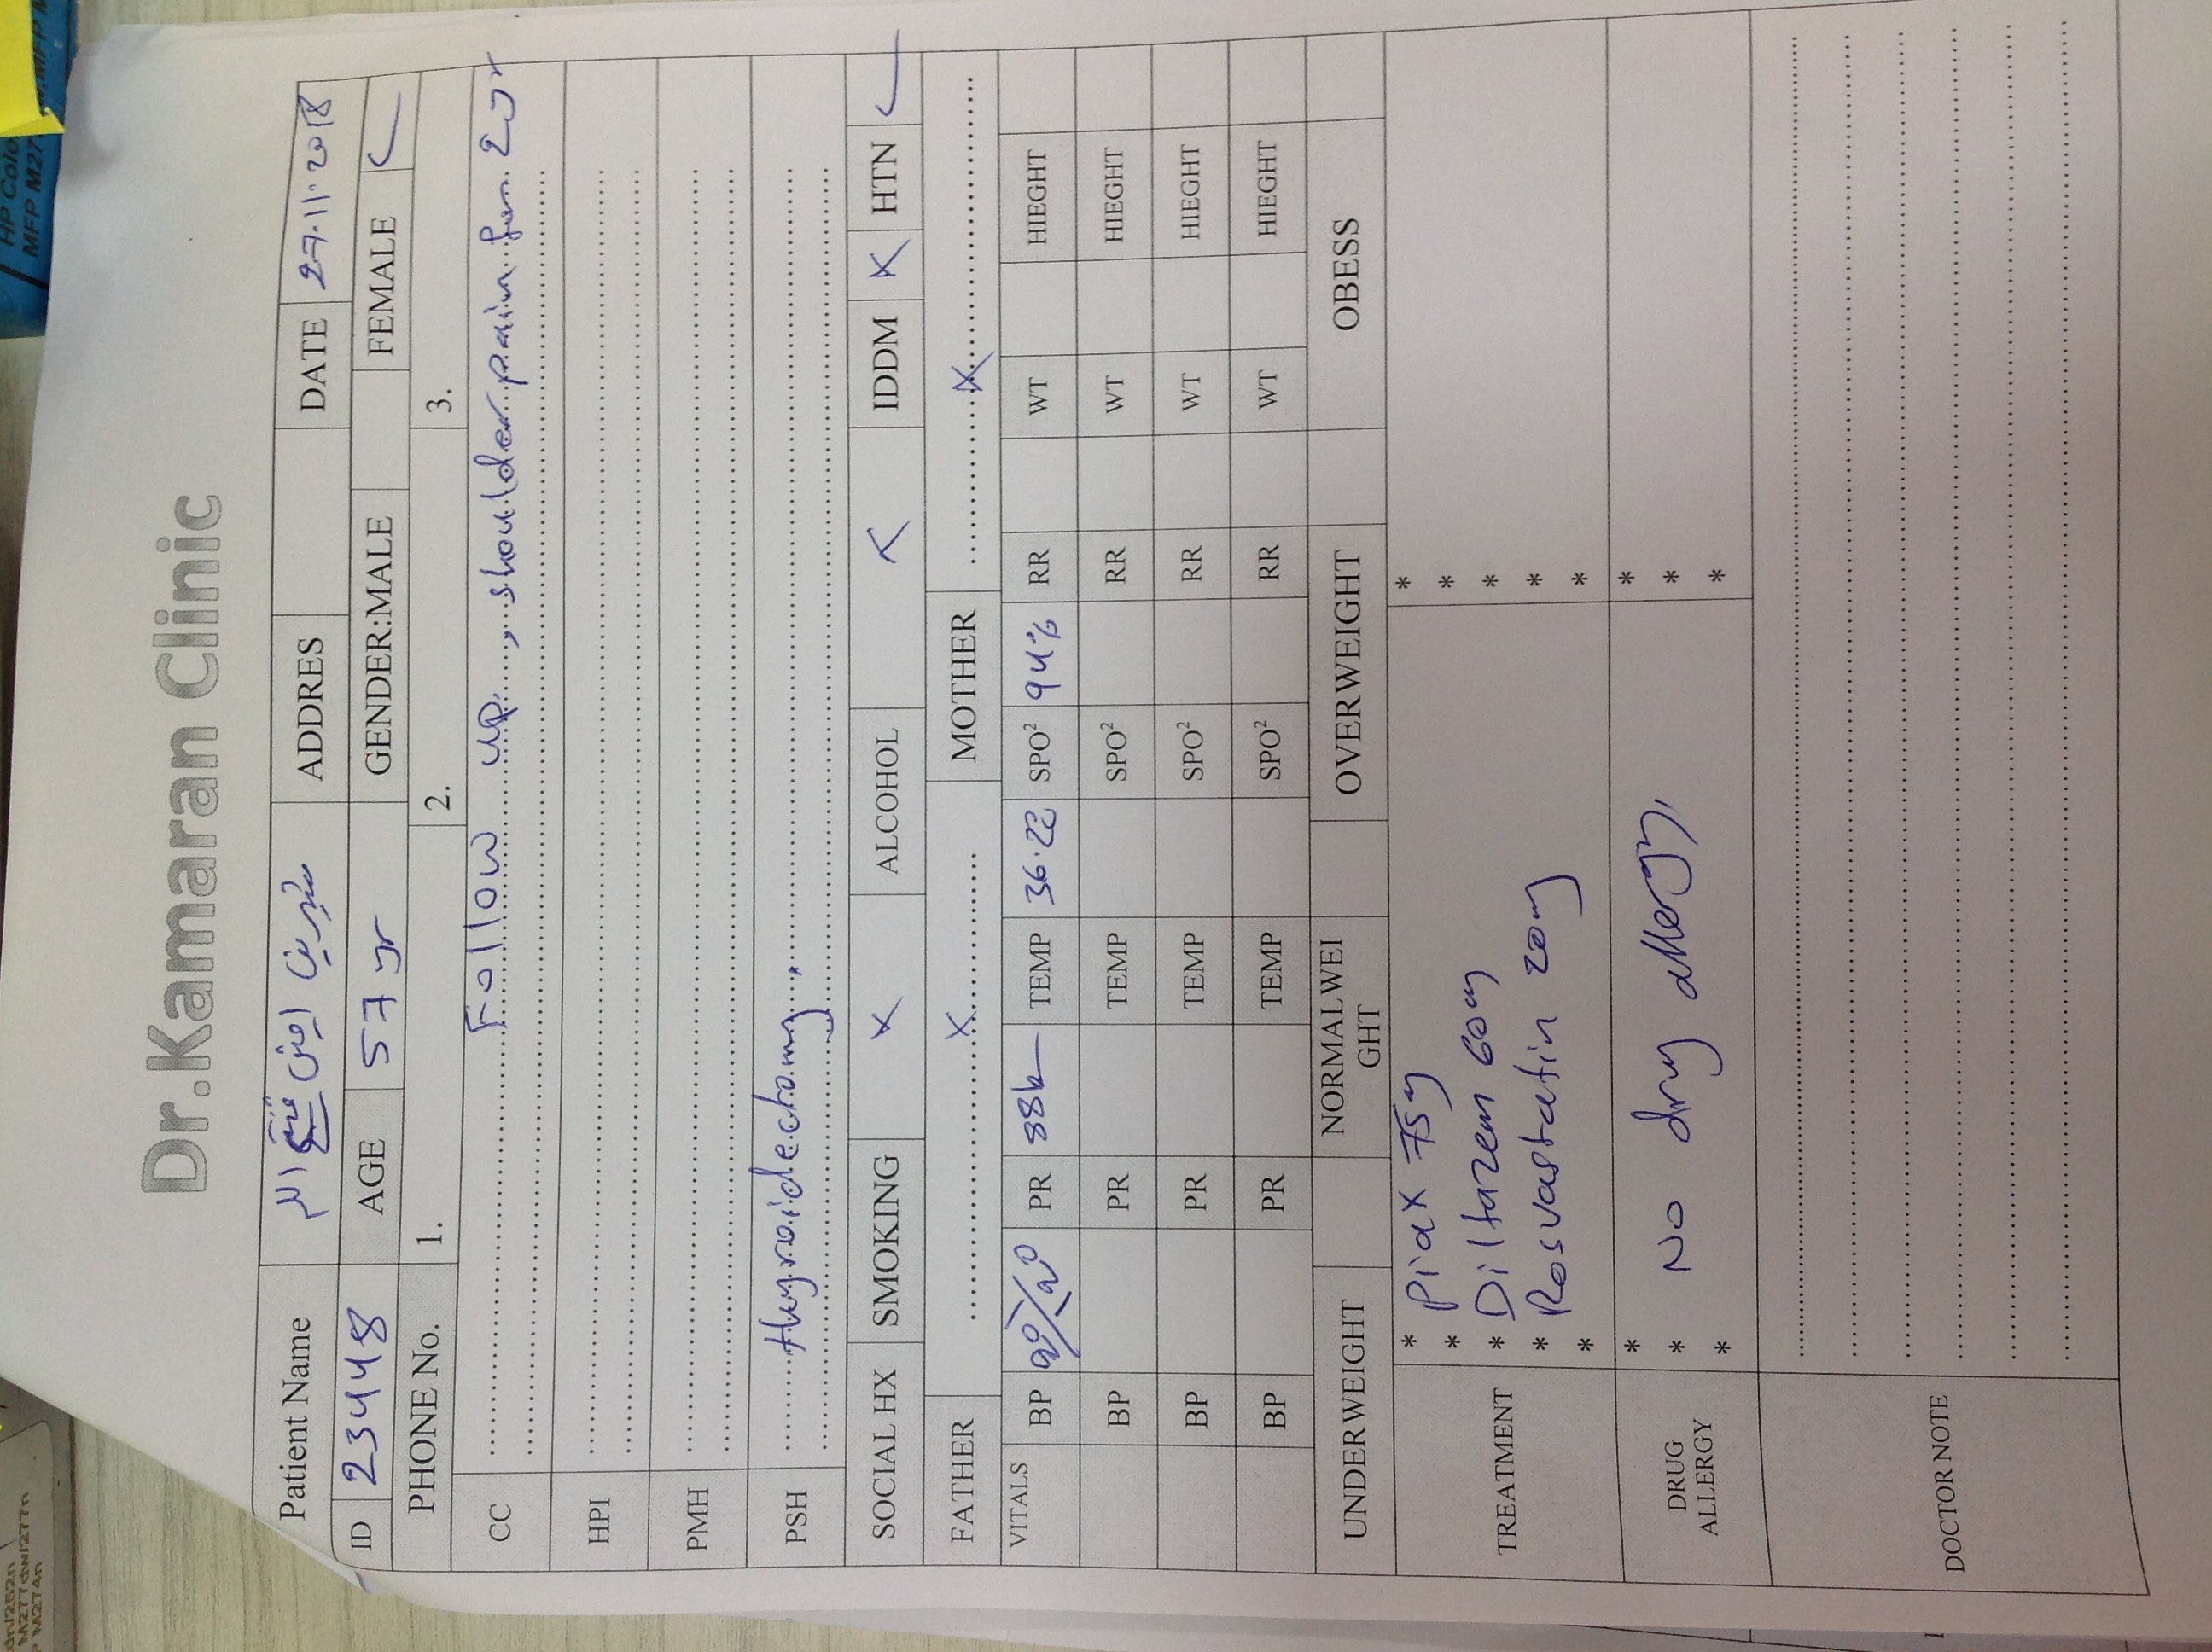 Dr.Kamaran Clinic
Patient Name شيرين امين ADDRES DATE 27.11.2018
ID 23448 AGE 57 yr GENDER:MALE FEMALE ✓
PHONE No. 1. 2. 3.
CC Follow up, shoulder pain for 2 yr
HPI
PMH
PSH thyroidectomy,
SOCIAL HX SMOKING X ALCOHOL X IDDM X HTN ✓
FATHER X MOTHER X
VITALS BP PR 88 TEMP 36.22 SPO² 94% RR WT HIEGHT
BP PR TEMP SPO² RR WT HIEGHT
BP PR TEMP SPO² RR WT HIEGHT
BP PR TEMP SPO² RR WT HIEGHT
UNDERWEIGHT NORMALWEIGHT OVERWEIGHT OBESS
TREATMENT
* Piax 75mg *
* *
* Diltazem 60mg *
* Rosvastatin 20mg *
* *
DRUG ALLERGY
* *
* No drug allergy, *
* *
DOCTOR NOTE
HP Colo
MFP M27
M277dw/277n
M274n